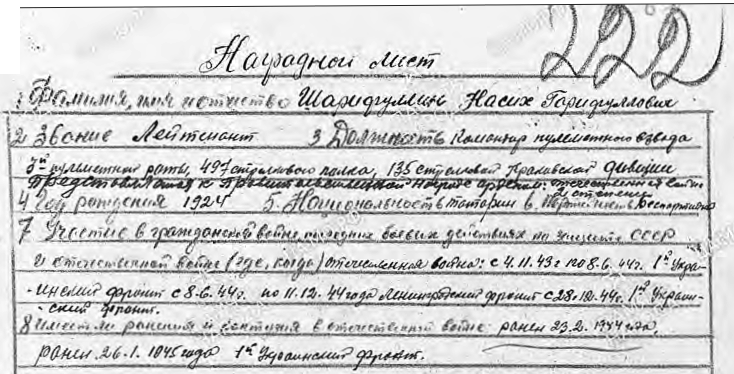 222
Наградной лист
1 Фамилия, имя и отчество Шарифуллин Насих Гарифуллович
2 Звание Лейтенант 3 Должность Командир пулеметного взвода
3й пулеметной роты, 497 стрелкового полка, 135 стрелковой Краковской дивизии
Представляется к правительственной награде орден: отечественной войны
II степени
4 Год рождения 1924 5. Национальность татарин 6. Партийность Беспартийн
7 Участие в гражданской войне, боевых действиях по защите СССР
и отечественной войне (где, когда) отечественная война: с 4.11.43г по 8.6.44г. 1й Укра-
-инский фронт с 8.6.44г. по 11.12.44 года Ленинградский фронт с 28.12.44г. 1й Украин-
-ский фронт.
8 Имеет ли ранения и контузия в отечественной войне: ранен 23.2.1944 года,
ранен 26.1.1945 года 1й Украинский фронт.